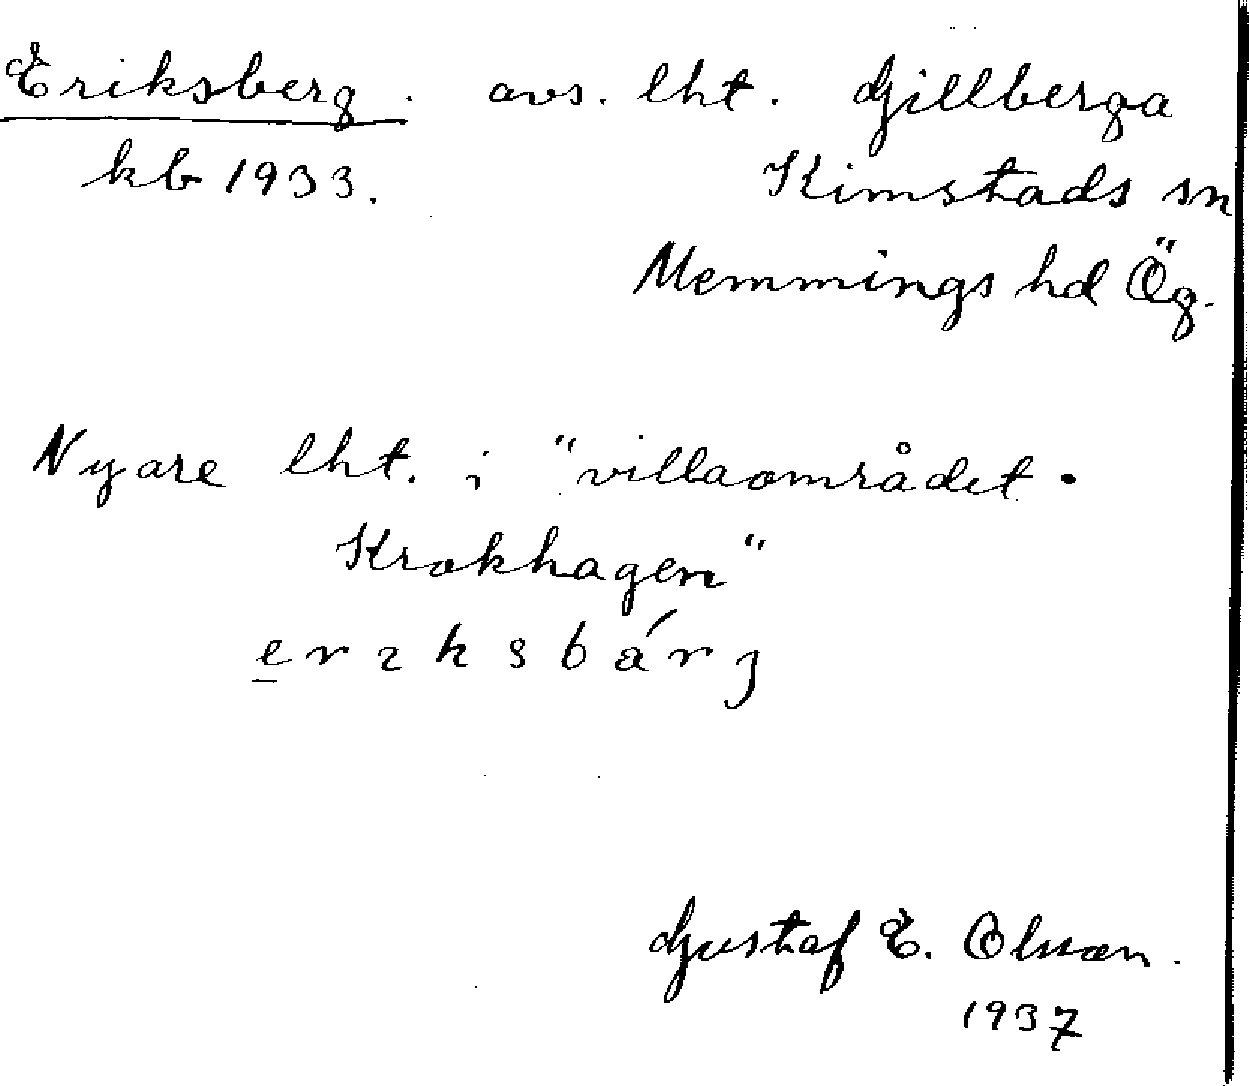 Eriksberg. avs. lht. Gillberga
kb 1933. Kimstads sn
Memmings hd Ög.
Nyare lht. i "villaområdet
Krokhagen"
eriksbárj
Gustaf E. Olsson.
1937